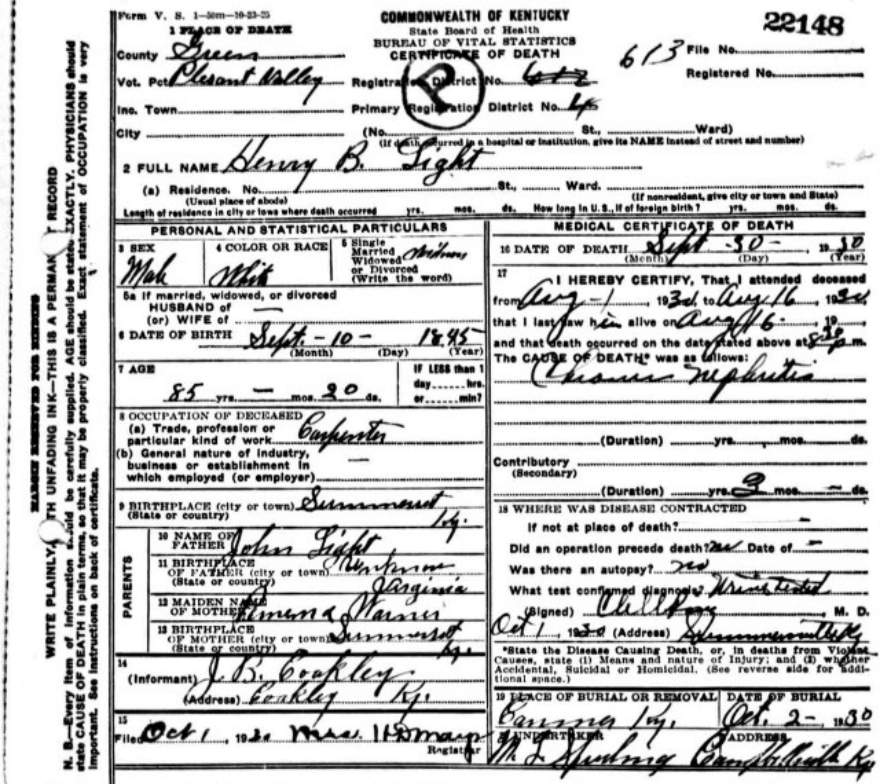 Form V. S. 1-50m-10-23-25
COMMONWEALTH OF KENTUCKY
State Board of Health
BUREAU OF VITAL STATISTICS
CERTIFICATE OF DEATH
22148
1 PLACE OF DEATH
County Green
Vot. Pct. Plesant Valley
Inc. Town
City
Registration District No.
Primary Registration District No. 4
613 File No.
Registered No.
P
(No. St., Ward)
(If death occurred in a hospital or institution, give its NAME instead of street and number)
2 FULL NAME Henry B. Light
(a) Residence. No. St., Ward.
(Usual place of abode) (If nonresident, give city or town and State)
Length of residence in city or town where death occurred yrs. mos. ds. How long in U. S., if of foreign birth? yrs. mos. ds.
PERSONAL AND STATISTICAL PARTICULARS
3 SEX
Male
4 COLOR OR RACE
White
5 Single
Married
Widowed
or Divorced
(Write the word)
5a If married, widowed, or divorced
HUSBAND of —
(or) WIFE of
6 DATE OF BIRTH Sept. -10- 1845
(Month) (Day) (Year)
7 AGE
85 yrs. — mos. 20 ds.
IF LESS than 1
day hrs.
or min?
8 OCCUPATION OF DECEASED
(a) Trade, profession or
particular kind of work Carpenter
(b) General nature of industry,
business or establishment in
which employed (or employer) —
9 BIRTHPLACE (city or town) Summerset
(State or country) Ky.
PARENTS
10 NAME OF
FATHER John Light
11 BIRTHPLACE
OF FATHER (city or town) Unknown
(State or country) Virginia
12 MAIDEN NAME
OF MOTHER Warner
13 BIRTHPLACE
OF MOTHER (city or town) Summerset
(State or country) Ky.
14
(Informant) J. B. Coakley
(Address) Coakley Ky.
15
Filed Oct 1, 1930 Mrs.
Registrar
MEDICAL CERTIFICATE OF DEATH
16 DATE OF DEATH Sept -30- 1930
(Month) (Day) (Year)
17
I HEREBY CERTIFY, That I attended deceased
from Aug-1, 1930, to Aug 16, 1930
that I last saw him alive on Aug 16, 19
and that death occurred on the date stated above at m.
The CAUSE OF DEATH* was as follows:
Chronic nephritis
(Duration) yrs. mos. ds.
Contributory
(Secondary)
(Duration) yrs. mos. — ds.
18 WHERE WAS DISEASE CONTRACTED
If not at place of death? —
Did an operation precede death? no Date of —
Was there an autopsy? no
What test confirmed diagnosis? Urine tested
(Signed) M. D.
Oct 1, 1930 (Address) Summersville Ky
*State the Disease Causing Death, or, in deaths from Violent
Causes, state (1) Means and nature of Injury; and (2) whether
Accidental, Suicidal or Homicidal. (See reverse side for addi-
tional space.)
19 PLACE OF BURIAL OR REMOVAL
Canmer Ky.
DATE OF BURIAL
Oct. 2- 1930
UNDERTAKER
M. L.
ADDRESS
Campbellsville Ky
MARGIN RESERVED FOR BINDING
WRITE PLAINLY, WITH UNFADING INK—THIS IS A PERMANENT RECORD
N. B.—Every item of information should be carefully supplied. AGE should be stated EXACTLY. PHYSICIANS should
state CAUSE OF DEATH in plain terms, so that it may be properly classified. Exact statement of OCCUPATION is very
important. See instructions on back of certificate.